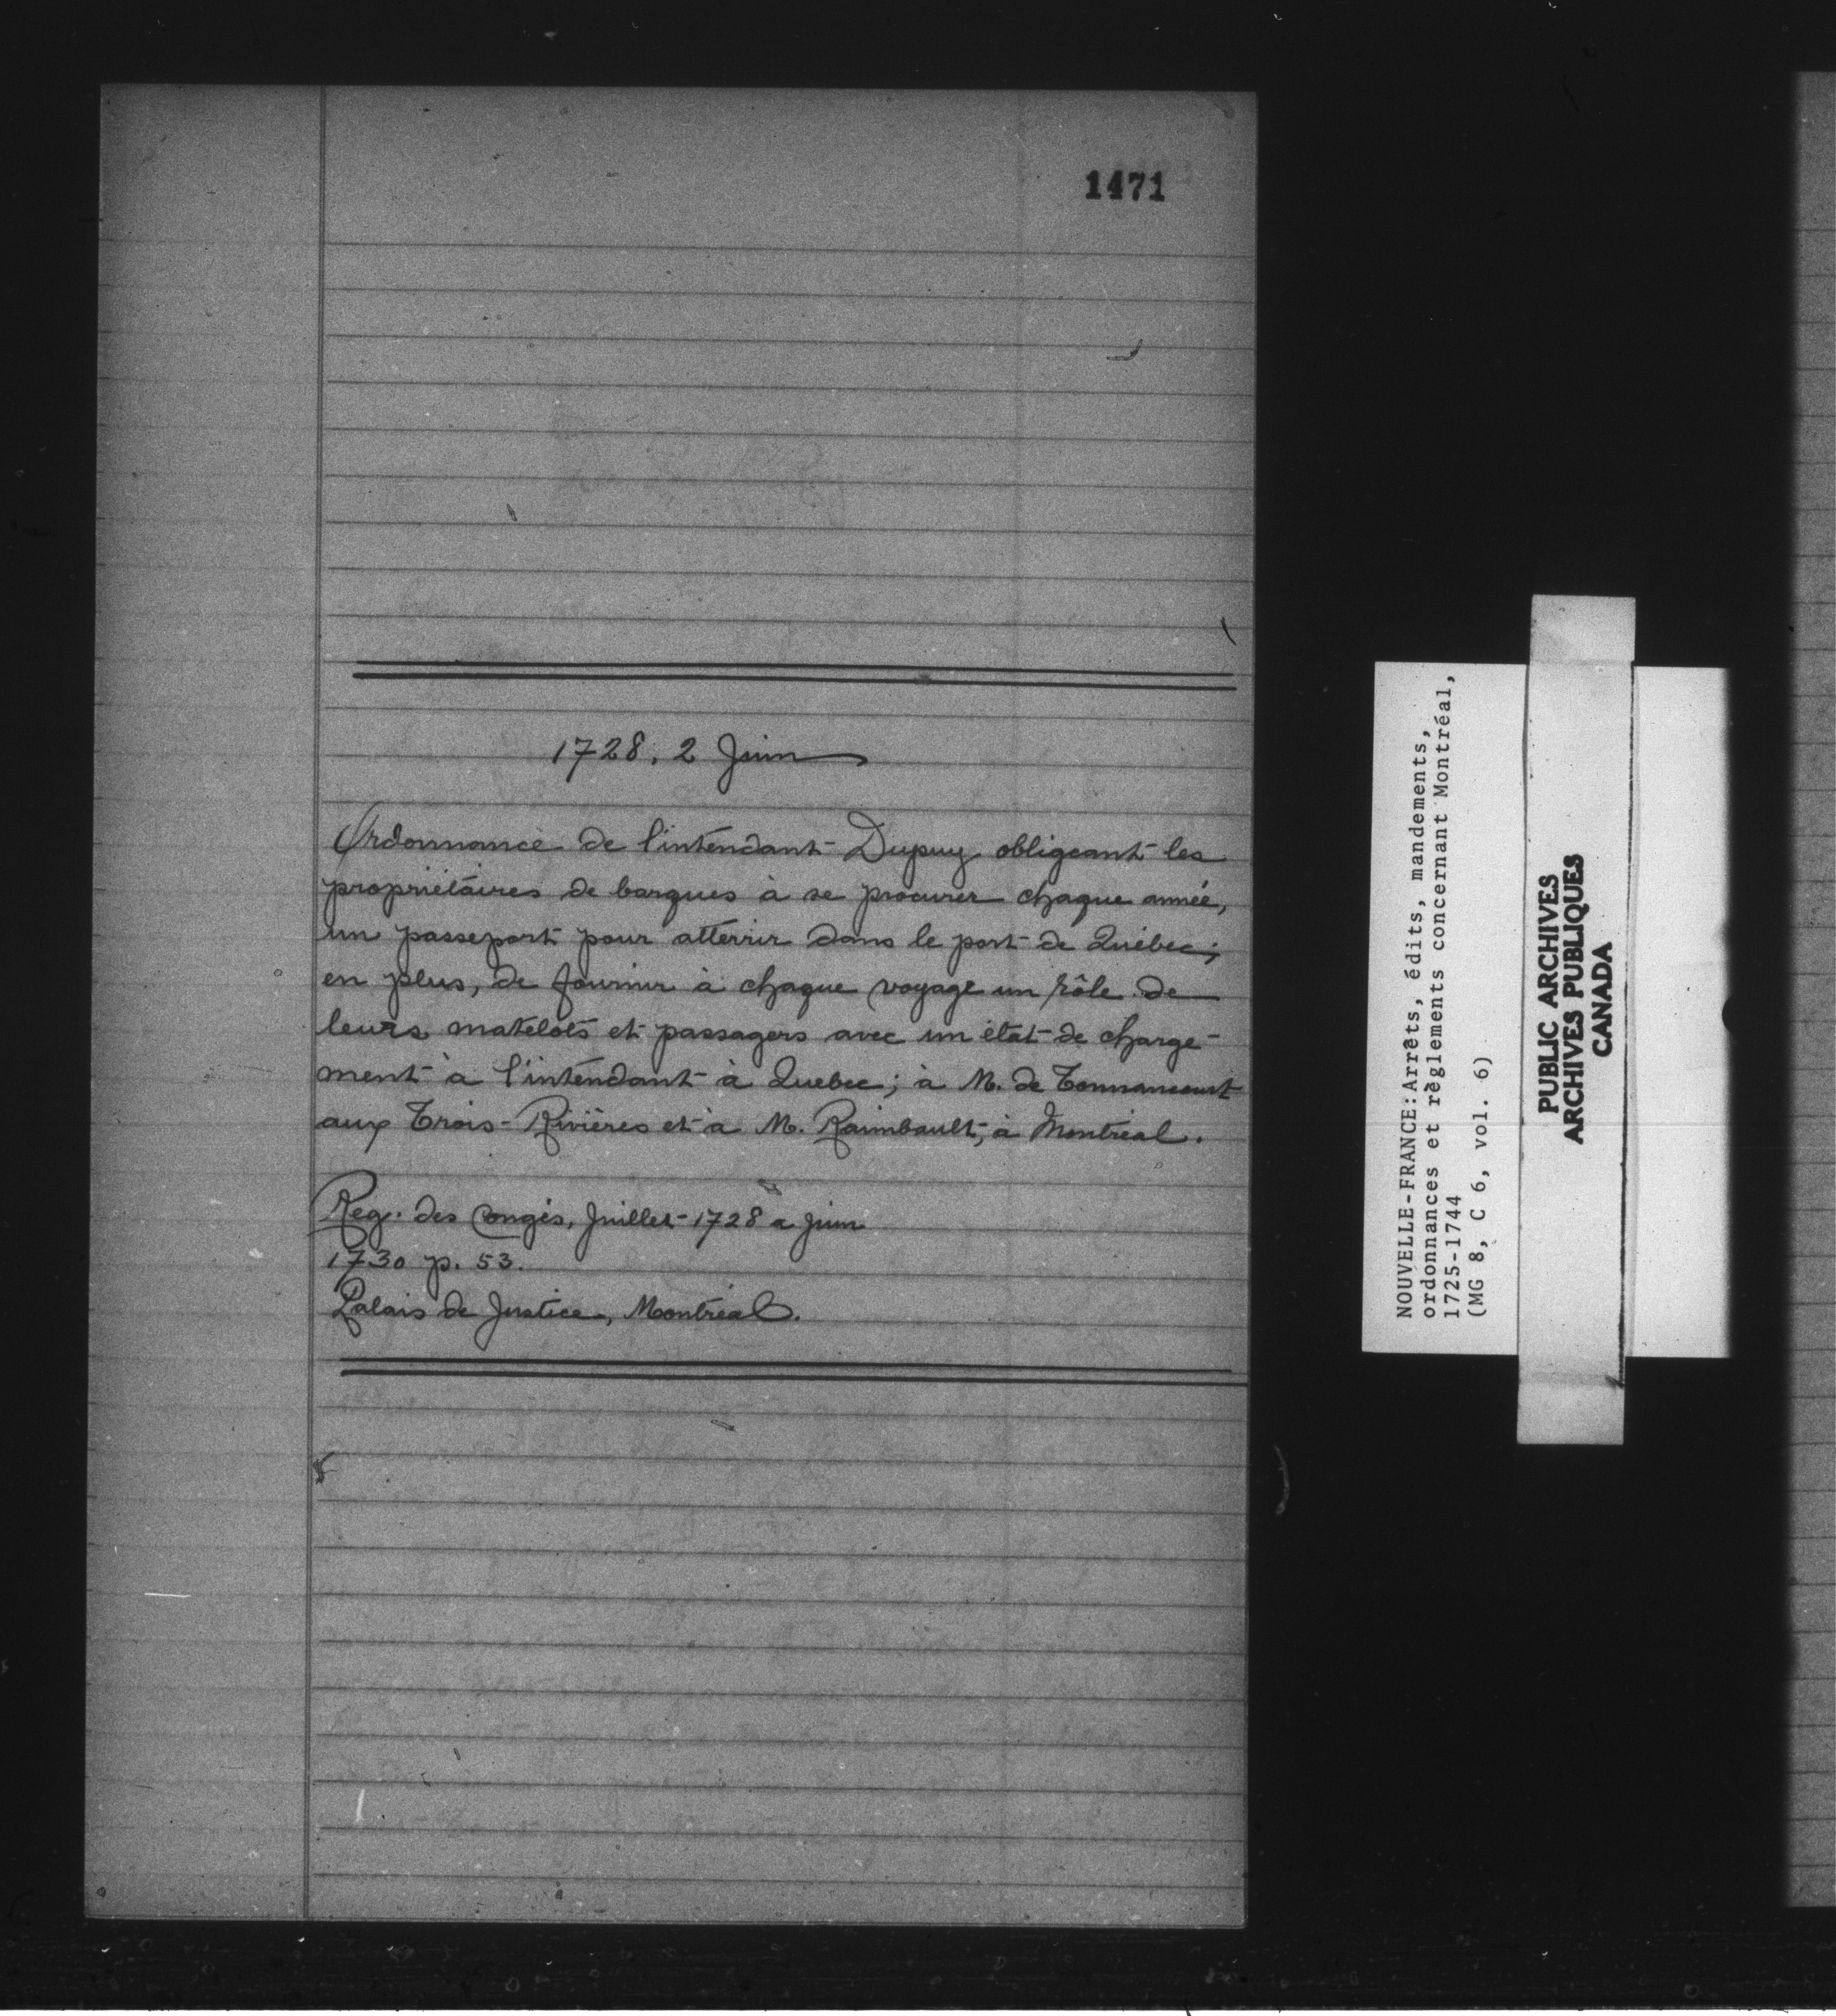 1471
1728, 2 Juin
Ordonnance de l'intendant Dupuy obligeant les
propriétaires de barques à se procurer chaque année,
un passeport pour atterrir dans le port de Québec;
en plus, de fournir à chaque voyage un rôle de
leurs matelots et passagers avec un état de charge-
ment à l'intendant à Quebec; à M. de Tonnancourt
aux Trois-Rivières et à M. Raimbault, à Montréal.
Reg. des Congés, Juillet 1728 a Juin
1730 p. 53.
Palais de Justice, Montréal.
NOUVELLE-FRANCE: Arrêts, édits, mandements,
ordonnances et règlements concernant Montréal,
1725-1744
(MG 8, C 6, vol. 6)
PUBLIC ARCHIVES
ARCHIVES PUBLIQUES
CANADA